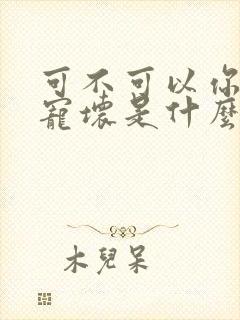 可不可以你
寵壞是什麼
木兒呆